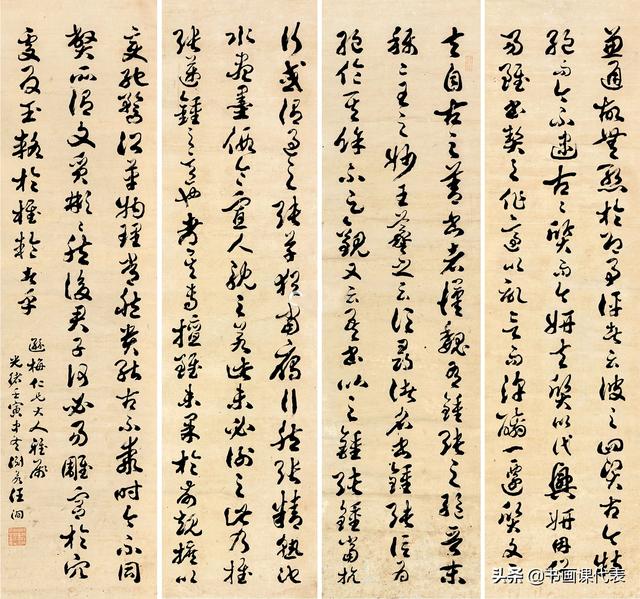 兼通故無慚於即事評者云彼之四賢古今特
絕而今不逮古古質而今妍夫質以代興妍因俗
易雖書契之作適以記言而淳醨一遷質文
夫自古之善書者漢魏有鍾張之絕晉末
稱二王之妙王羲之云頃尋諸名書鍾張信為
絕倫其餘不足觀又云吾書比之鍾張鍾當抗
行或謂過之張草猶當雁行然張精熟池
水盡墨假令寡人耽之若此未必謝之此乃推
張邁鍾之意也考其專擅雖未果於前規摭以
變馳騖沿革物理常然貴能古不乖時今不同
弊所謂文質彬彬然後君子何必易雕宮於穴
處反玉輅於椎輪者乎
梅仁兄大人雅屬
光緒壬寅中夏淵若汪洵
头条 @书画课代表